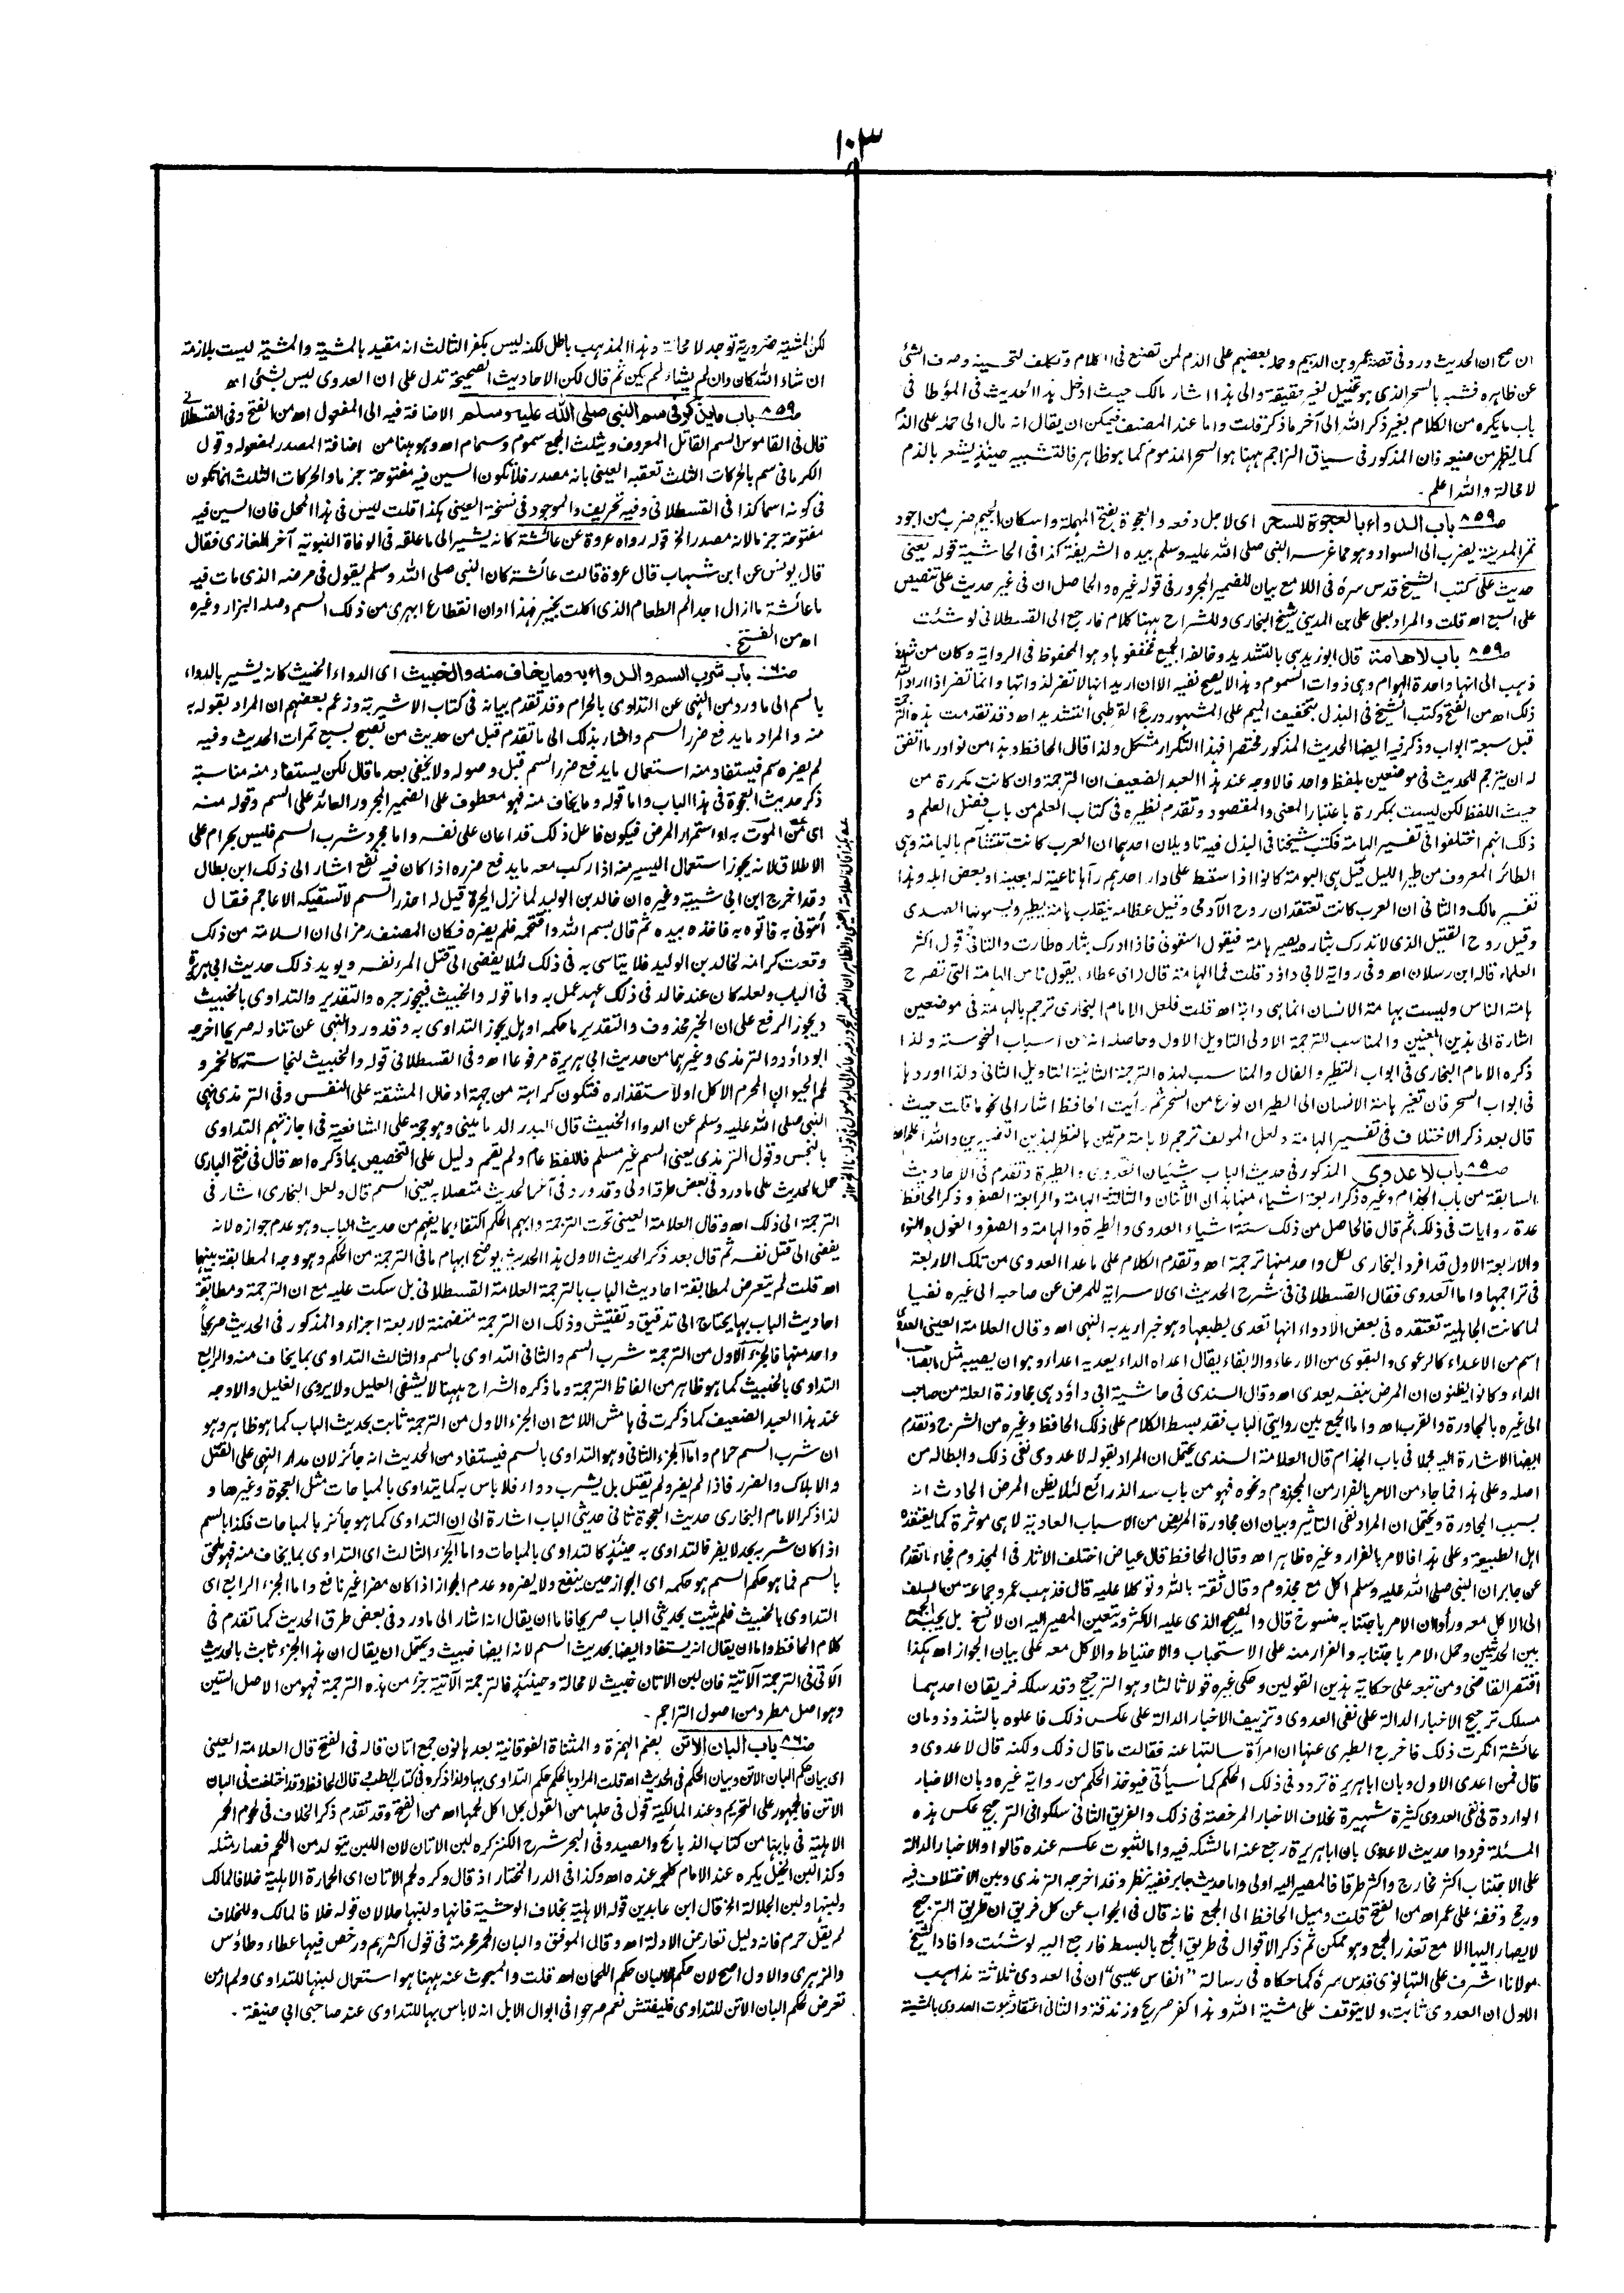 ١٠٣
ان صح ان الحديث ورد فى قصة عمرو بن الاهيم وحمله بعضهم على الذم لمن تصنع فى الكلام وتكلف لتحسينه وصرف الشئ
عن ظاهره فشبه بالسحر الذى هو تخييل لغير حقيقة والى هذا اشار مالك حيث ادخل هذا الحديث فى المؤطا فى
باب ما يكره من الكلام بغير ذكر الله الى آخر ما ذكر قلت واما عند المصنف فيمكن ان يقال انه مال الى حمله على الذم
كما يظهر من صنيعه فان المذكور فى سياق التراجم ههنا هو السحر المذموم كما هو ظاهر فالتشبيه حينئذ يشعر بالذم
لا محالة والله اعلم ۔
صـ٨٥٩ باب الدواء بالعجوة للسحر اى لاجل دفعه والعجوة بفتح المهملة واسكان الجيم ضرب من اجود
تمر المدينة يضرب الى السواد وهو مما غرسه النبى صلى الله عليه وسلم بيده الشريفة كذا فى الحاشية قوله يعنى
حديث على كتب الشيخ قدس سره فى اللامع بيان للضمير المجرور فى قوله غيره والحاصل ان فى غير حديث على تنصيص
على السبع اه قلت والمراد بعلى على بن المدينى شيخ البخارى وللشراح ههنا كلام فارجع الى القسطلانى لو شئت
صـ٨٥٩ باب لا هامة قال ابو زيد هى بالتشديد وخالفه الجميع فخففوها وهو المحفوظ فى الرواية وكان من شددها
ذهب الى انها واحدة الهوام وهى ذوات السموم وهذا لا يصح نفيه الا ان اريد انها لا تضر لذواتها وانما تضر اذا اراد الله
ذلك اه من الفتح وكتب الشيخ فى البذل بتخفيف الميم على المشهور ورجح القرطبى التشديد اه وقد تقدمت هذه الترجمة
قبل سبعة ابواب وذكر فيه ايضا الحديث المذكور مختصرا فهذا التكرار مشكل ولذا قال الحافظ وهذا من نوادر ما اتفق
له ان يترجم للحديث فى موضعين بلفظ واحد فالاوجه عند هذا العبد الضعيف ان الترجمة وان كانت مكررة من
حيث اللفظ لكن ليست بمكررة باعتبار المعنى والمقصود وتقدم نظيره فى كتاب العلم من باب فضل العلم و
ذلك انهم اختلفوا فى تفسير الهامة فكتب شيخنا فى البذل فيه تاويلان احدهما ان العرب كانت تتشآم بالهامة وهى
الطائر المعروف من طير الليل قيل هى البومة كانوا اذا سقط على دار احدهم رآها ناعية له بعينه او بعض اهله وهذا
تفسير مالك والثانى ان العرب كانت تعتقد ان روح الآدمى وقيل عظامه ينقلب هامة يطير ويسمونها الصدى
وقيل روح القتيل الذى لا تدرك بثاره يصير هامة فيقول اسقونى فاذا ادرك بثاره طارت والثانى قول اكثر
العلماء قاله ابن رسلان اه وفى رواية لابى داؤد قلت فما الهامة قال (اى عطاء) يقول ناس الهامة التى تصرح
هامة الناس وليست بهامة الانسان انما هى دابة اه قلت فلعل الامام البخارى ترجم بالهامة فى موضعين
اشارة الى هذين المعنيين والمناسب للترجمة الاولى التاويل الاول وحاصله انه من اسباب النحوسة ولذا
ذكره الامام البخارى فى ابواب التطير والفال والمناسب لهذه الترجمة الثانية التاويل الثانى ولذا اوردها
فى ابواب السحر فان تغير هامة الانسان الى الطيران نوع من السحر ثم رأيت الحافظ اشار الى نحو ما قلت حيث
قال بعد ذكر الاختلاف فى تفسير الهامة ولعل المولف ترجم لا هامة مرتين بالنظر لهذين التفسيرين والله اعلم اه
صـ٨٥٩ باب لا عدوى المذكور فى حديث الباب شيئان العدوى والطيرة وتقدم فى الاحاديث
السابقة من باب الجذام وغيره ذكر اربعة اشياء منها هذان الاثنان والثالثة الهامة والرابعة الصفر وذكر الحافظ
عدة روايات فى ذلك ثم قال فالحاصل من ذلك ستة اشياء العدوى والطيرة والهامة والصفر والغول والنوء
والاربعة الاول قد افرد البخارى لكل واحد منها ترجمة اه وتقدم الكلام على ما عدا العدوى من تلك الاربعة
فى تراجمها واما العدوى فقال القسطلانى فى شرح الحديث اى لا سراية للمرض عن صاحبه الى غيره نفيا
لما كانت الجاهلية تعتقده فى بعض الادواء انها تعدى بطبعها وهو خبر اريد به النهى اه وقال العلامة العينى العدوى
اسم من الاعداء كالرعوى والبقوى من الارعاء والابقاء يقال اعداه الداء يعديه اعداء وهو ان يصيبه مثل ما بصاحب
الداء وكانوا يظنون ان المرض بنفسه يعدى اه وقال السندى فى حاشية ابى داؤد هى مجاوزة العلة من صاحبه
الى غيره بالمجاورة والقرب اه واما الجمع بين روايتى الباب فقد بسط الكلام على ذلك الحافظ وغيره من الشرح وتقدم
ايضا الاشارة اليه مجملا فى باب الجذام قال العلامة السندى يحتمل ان المراد بقوله لا عدوى نفى ذلك وابطاله من
اصله وعلى هذا فما جاء من الامر بالفرار من المجذوم ونحوه فهو من باب سد الذرائع لئلا يظن المرض الحادث انه
بسبب المجاورة ويحتمل ان المراد نفى التاثير وبيان ان مجاورة المريض من الاسباب العادية لا هى موثرة كما يعتقده
اهل الطبيعة وعلى هذا فالامر بالفرار وغيره ظاهر اه وقال الحافظ قال عياض اختلف الاثار فى المجذوم فجاء ما تقدم
عن جابر ان النبى صلى الله عليه وسلم اكل مع مجذوم وقال ثقة بالله وتوكلا عليه قال فذهب عمر وجماعة من السلف
الى الاكل معه ورأوا ان الامر باجتنابه منسوخ قال والصحيح الذى عليه الاكثر ويتعين المصير اليه ان لا نسخ بل يجب الجمع
بين الحديثين وحمل الامر باجتنابه والفرار منه على الاستحباب والاحتياط والاكل معه على بيان الجواز اه هكذا
اقتصر القاضى ومن تبعه على حكاية هذين القولين وحكى غيره قولا ثالثا وهو الترجيح وقد سلكه فريقان احدهما
مسلك ترجيح الاخبار الدالة على نفى العدوى وتزييف الاخبار الدالة على عكس ذلك فاعلوه بالشذوذ وبان
عائشة انكرت ذلك فاخرج الطبرى عنها ان امرأة سالتها عنه فقالت ما قال ذلك ولكنه قال لا عدوى و
قال فمن اعدى الاول وبان ابا هريرة تردد فى ذلك الحكم كما سيأتى فيوخذ الحكم من رواية غيره وبان الاخبار
الواردة فى نفى العدوى كثيرة شهيرة بخلاف الاخبار المرخصة فى ذلك والفريق الثانى سلكوا فى الترجيح عكس هذه
المسئلة فردوا حديث لا عدوى بان ابا هريرة رجع عنه اما لشكه فيه واما لثبوت عكسه عنده قالوا والاخبار الدالة
على الاجتناب اكثر مخارج واكثر طرقا فالمصير اليه اولى واما حديث جابر ففيه نظر وقد اخرجه الترمذى وبين الاختلاف فيه
ورجح وقفه على عمر اه من الفتح قلت وميل الحافظ الى الجمع فانه قال فى الجواب عن كل فريق ان طريق الترجيح
لا يصار اليها الا مع تعذر الجمع وهو ممكن ثم ذكر الاقوال فى طريق الجمع بالبسط فارجع اليه لو شئت وافاد الشيخ
مولانا اشرف على التهانوى قدس سره كما حكاه فى رسالة "انفاس عيسى" ان فى العدوى ثلاثة مذاهب
الاول ان العدوى ثابتة ولا يتوقف على مشية الله وهذا كفر صريح وزندقة والثانى اعتقاد ثبوت العدوى بالمشية
لكن المشية ضرورية توجد لا محالة وهذا المذهب باطل لكنه ليس بكفر الثالث انه مقيد بالمشية والمشية ليست بلازمة
ان شاء الله كان وان لم يشاء لم يكن ثم قال لكن الاحاديث الصحيحة تدل على ان العدوى ليس بشئ اه
صـ٨٥٩ باب ما يذكر فى سم النبى صلى الله عليه وسلم الاضافة فيه الى المفعول اه من الفتح وفى القسطلانى
قال فى القاموس السم القاتل المعروف ويثلث الجمع سموم وسمام اه وهو ههنا من اضافة المصدر لمفعوله وقول
الكرمانى سم بالحركات الثلث تعقبه العينى بانه مصدر فلا تكون السين فيه مفتوحة جزما والحركات الثلث انما تكون
فى كونه اسما كذا فى القسطلانى وفيه تحريف والموجود فى نسخة العينى هكذا قلت ليس فى هذا المحل فان السين فيه
مفتوحة جزما لانه مصدر الخ قوله رواه عروة عن عائشة كانه يشير الى ما علقه فى الوفاة النبوية آخر المغازى فقال
قال يونس عن ابن شهاب قال عروة قالت عائشة كان النبى صلى الله وسلم يقول فى مرضه الذى مات فيه
يا عائشة ما ازال اجد الم الطعام الذى اكلت بخيبر فهذا اوان انقطاع ابهرى من ذلك السم وصله البزار وغيره
اه من الفتح ۔
صـ٨٦٠ باب شرب السم والدواء به وما يخاف منه والخبيث اى الدواء الخبيث كانه يشير بالدواء
بالسم الى ما ورد من النهى عن التداوى بالحرام وقد تقدم بيانه فى كتاب الاشربة وزعم بعضهم ان المراد بقوله به
منه والمراد ما يدفع ضرر السم واشار بذلك الى ما تقدم قبل من حديث من تصبح بسبع تمرات الحديث وفيه
لم يضره سم فيستفاد منه استعمال ما يدفع ضرر السم قبل وصوله ولا يخفى بعد ما قال لكن يستفاد منه مناسبة
ذكر حديث العجوة فى هذا الباب واما قوله وما يخاف منه فهو معطوف على الضمير المجرور العائد على السم وقوله منه
اى من الموت به او استمرار المرض فيكون فاعل ذلك قد اعان على نفسه واما مجرد شرب السم فليس بحرام على
الاطلاق لانه يجوز استعمال اليسير منه اذا ركب معه ما يدفع ضرره اذا كان فيه نفع اشار الى ذلك ابن بطال
وقد اخرج ابن ابى شيبة وغيره ان خالد بن الوليد لما نزل الحيرة قيل له احذر السم لا تسقيكه الاعاجم فقال
أئتونى به فاتوه به فاخذه بيده ثم قال بسم الله واقتحمه فلم يضره فكان المصنف رمز الى ان السلامة من ذلك
وقعت كرامة لخالد بن الوليد فلا يتاسى به فى ذلك لئلا يفضى الى قتل المرء نفسه ويويد ذلك حديث ابى هريرة
فى الباب ولعله كان عند خالد فى ذلك عهد عمل به واما قوله والخبيث فيجوز جره والتقدير والتداوى بالخبيث
ويجوز الرفع على ان الخبر محذوف والتقدير ما حكمه او هل يجوز التداوى به وقد ورد النهى عن تناوله صريحا اخرجه
ابو داؤد والترمذى وغيرهما من حديث ابى هريرة مرفوعا اه وفى القسطلانى قوله والخبيث لنجاسته كالخمر و
لحم الحيوان المحرم الاكل او لاستقذاره فتكون كراهته من جهة ادخال المشقة على النفس وفى الترمذى نهى
النبى صلى الله عليه وسلم عن الدواء الخبيث قال البدر الدمامينى وهو حجة على الشافعية فى اجازتهم التداوى
بالنجس وقول الترمذى يعنى السم غير مسلم فاللفظ عام ولم يقم دليل على التخصيص بما ذكره اه قال فى فتح البارى
حمل الحديث على ما ورد فى بعض طرقه اولى وقد ورد فى آخر الحديث متصلا به يعنى السم قال ولعل البخارى اشار فى
الترجمة الى ذلك اه وقال العلامة العينى تحت الترجمة وابهم الحكم اكتفاء بما يفهم من حديث الباب وهو عدم جوازه لانه
يفضى الى قتل نفسه ثم قال بعد ذكر الحديث الاول هذا الحديث يوضح ابهام ما فى الترجمة من الحكم وهو وجه المطابقة بينهما
اه قلت لم يتعرض لمطابقة احاديث الباب بالترجمة العلامة القسطلانى بل سكت عليه مع ان الترجمة ومطابقة
احاديث الباب بها يحتاج الى تدقيق وتفتيش وذلك ان الترجمة متضمنة لاربعة اجزاء والمذكور فى الحديث صريحا
واحد منها فالجزء الاول من الترجمة شرب السم والثانى التداوى بالسم والثالث التداوى بما يخاف منه والرابع
التداوى بالخبيث كما هو ظاهر من الفاظ الترجمة وما ذكره الشراح ههنا لا يشفى العليل ولا يروى الغليل والاوجه
عند هذا العبد الضعيف كما ذكرت فى هامش اللامع ان الجزء الاول من الترجمة ثابت بحديث الباب كما هو ظاهر وهو
ان شرب السم حرام واما الجزء الثانى وهو التداوى بالسم فيستفاد من الحديث انه جائز لان مدار النهى على القتل
والاهلاك والضرر فاذا لم يضر ولم يقتل بل يشرب دواء فلا باس به كما يتداوى بالمباحات مثل العجوة وغيرها و
لذا ذكر الامام البخارى حديث العجوة ثانى حديثى الباب اشارة الى ان التداوى كما هو جائز بالمباحات فكذا بالسم
اذا كان شربه بحد لا يضر فالتداوى به حينئذ كالتداوى بالمباحات واما الجزء الثالث اى التداوى بما يخاف منه فهو ملحق
بالسم فما هو حكم السم هو حكمه اى الجواز حين ينفع ولا يضره وعدم الجواز اذا كان مضرا غير نافع واما الجزء الرابع اى
التداوى بالخبيث فلم يثبت بحديثى الباب صريحا فاما ان يقال انه اشار الى ما ورد فى بعض طرق الحديث كما تقدم فى
كلام الحافظ واما ان يقال انه يستفاد ايضا بحديث السم لانه ايضا خبيث ويحتمل ان يقال ان هذا الجزء ثابت بالحديث
الآتى فى الترجمة الآتية فان لبن الاتان خبيث لا محالة وحينئذ فالترجمة الآتية جزء من هذه الترجمة فهو من الاصل الستين
وهو اصل مطرد من اصول التراجم ۔
صـ٨٦٠ باب البان الاتن بضم الهمزة والمثناة الفوقانية بعدها نون جمع اتان قاله فى الفتح قال العلامة العينى
اى بيان حكم البان الاتن وبيان الحكم فى الحديث اه قلت المراد بالحكم حكم التداوى بها ولذا ذكره فى كتاب الطب قال الحافظ وقد اختلف فى البان
الاتن فالجمهور على التحريم وعند المالكية قول فى حلها من القول بحل اكل لحمها اه من الفتح وقد تقدم ذكر الخلاف فى لحوم الحمر
الاهلية فى بابها من كتاب الذبائح والصيد وفى البحر شرح الكنز كره لبن الاتان لان اللبن يتولد من اللحم فصار مثله
وكذا لبن الخيل يكره عند الامام كلحمه عنده اه وكذا فى الدر المختار اذ قال وكره لحم الاتان اى الحمارة الاهلية خلافا لمالك
ولبنها ولبن الجلالة الخ قال ابن عابدين قوله الاهلية بخلاف الوحشية فانها ولبنها حلالان قوله خلافا لمالك وللخلاف
لم يقل حرم فانه دليل تعارض الادلة اه وقال الموفق والبان الحمر محرمة فى قول اكثرهم ورخص فيها عطاء وطاؤس
والزهرى والاول اصح لان حكم الالبان حكم اللحمان اه قلت والمبحوث عنه ههنا هو استعمال لبنها للتداوى ولم ار من
تعرض لحكم البان الاتن للتداوى فليفتش نعم صرحوا فى ابوال الابل انه لا باس بها للتداوى عند صاحبى ابى حنيفة ۔